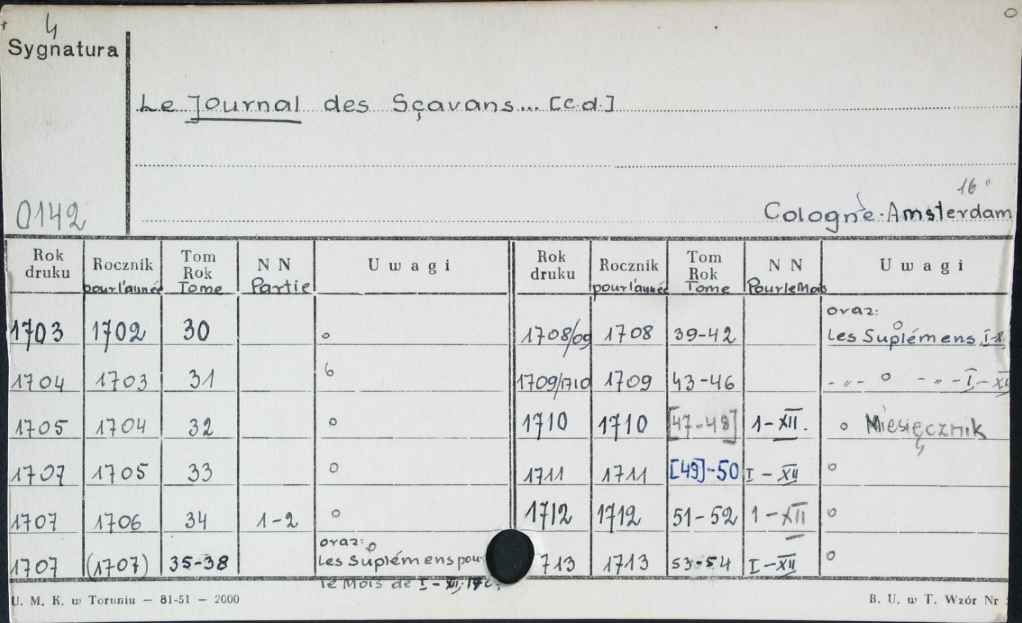 4
Sygnatura
Le Journal des Sçavans... [c.d.]
16°
0142
Cologne-Amsterdam
Rok druku Rocznik pour l'année Tom Rok Tome NN Partie Uwagi Rok druku Rocznik pour l'année Tom Rok Tome NN Pour le Mois Uwagi
1703 1702 30 o 1708/09 1708 39-42 oraz: o Les Suplémens I-
1704 1703 31 6 1709/1710 1709 43-46 -"- o -"- I-XII
1705 1704 32 o 1710 1710 [47-48] 1-XII. o Miesięcznik
1707 1705 33 o 1711 1711 [49]-50 I-XII o
1707 1706 34 1-2 o 1712 1712 51-52 1-XII o
1707 (1707) 35-38 oraz: o Les Suplémens pour le Mois de I-XII 713 1713 53-54 I-XII o
U. M. K. w Toruniu — 81-51 — 2000
B. U. w T. Wzór Nr